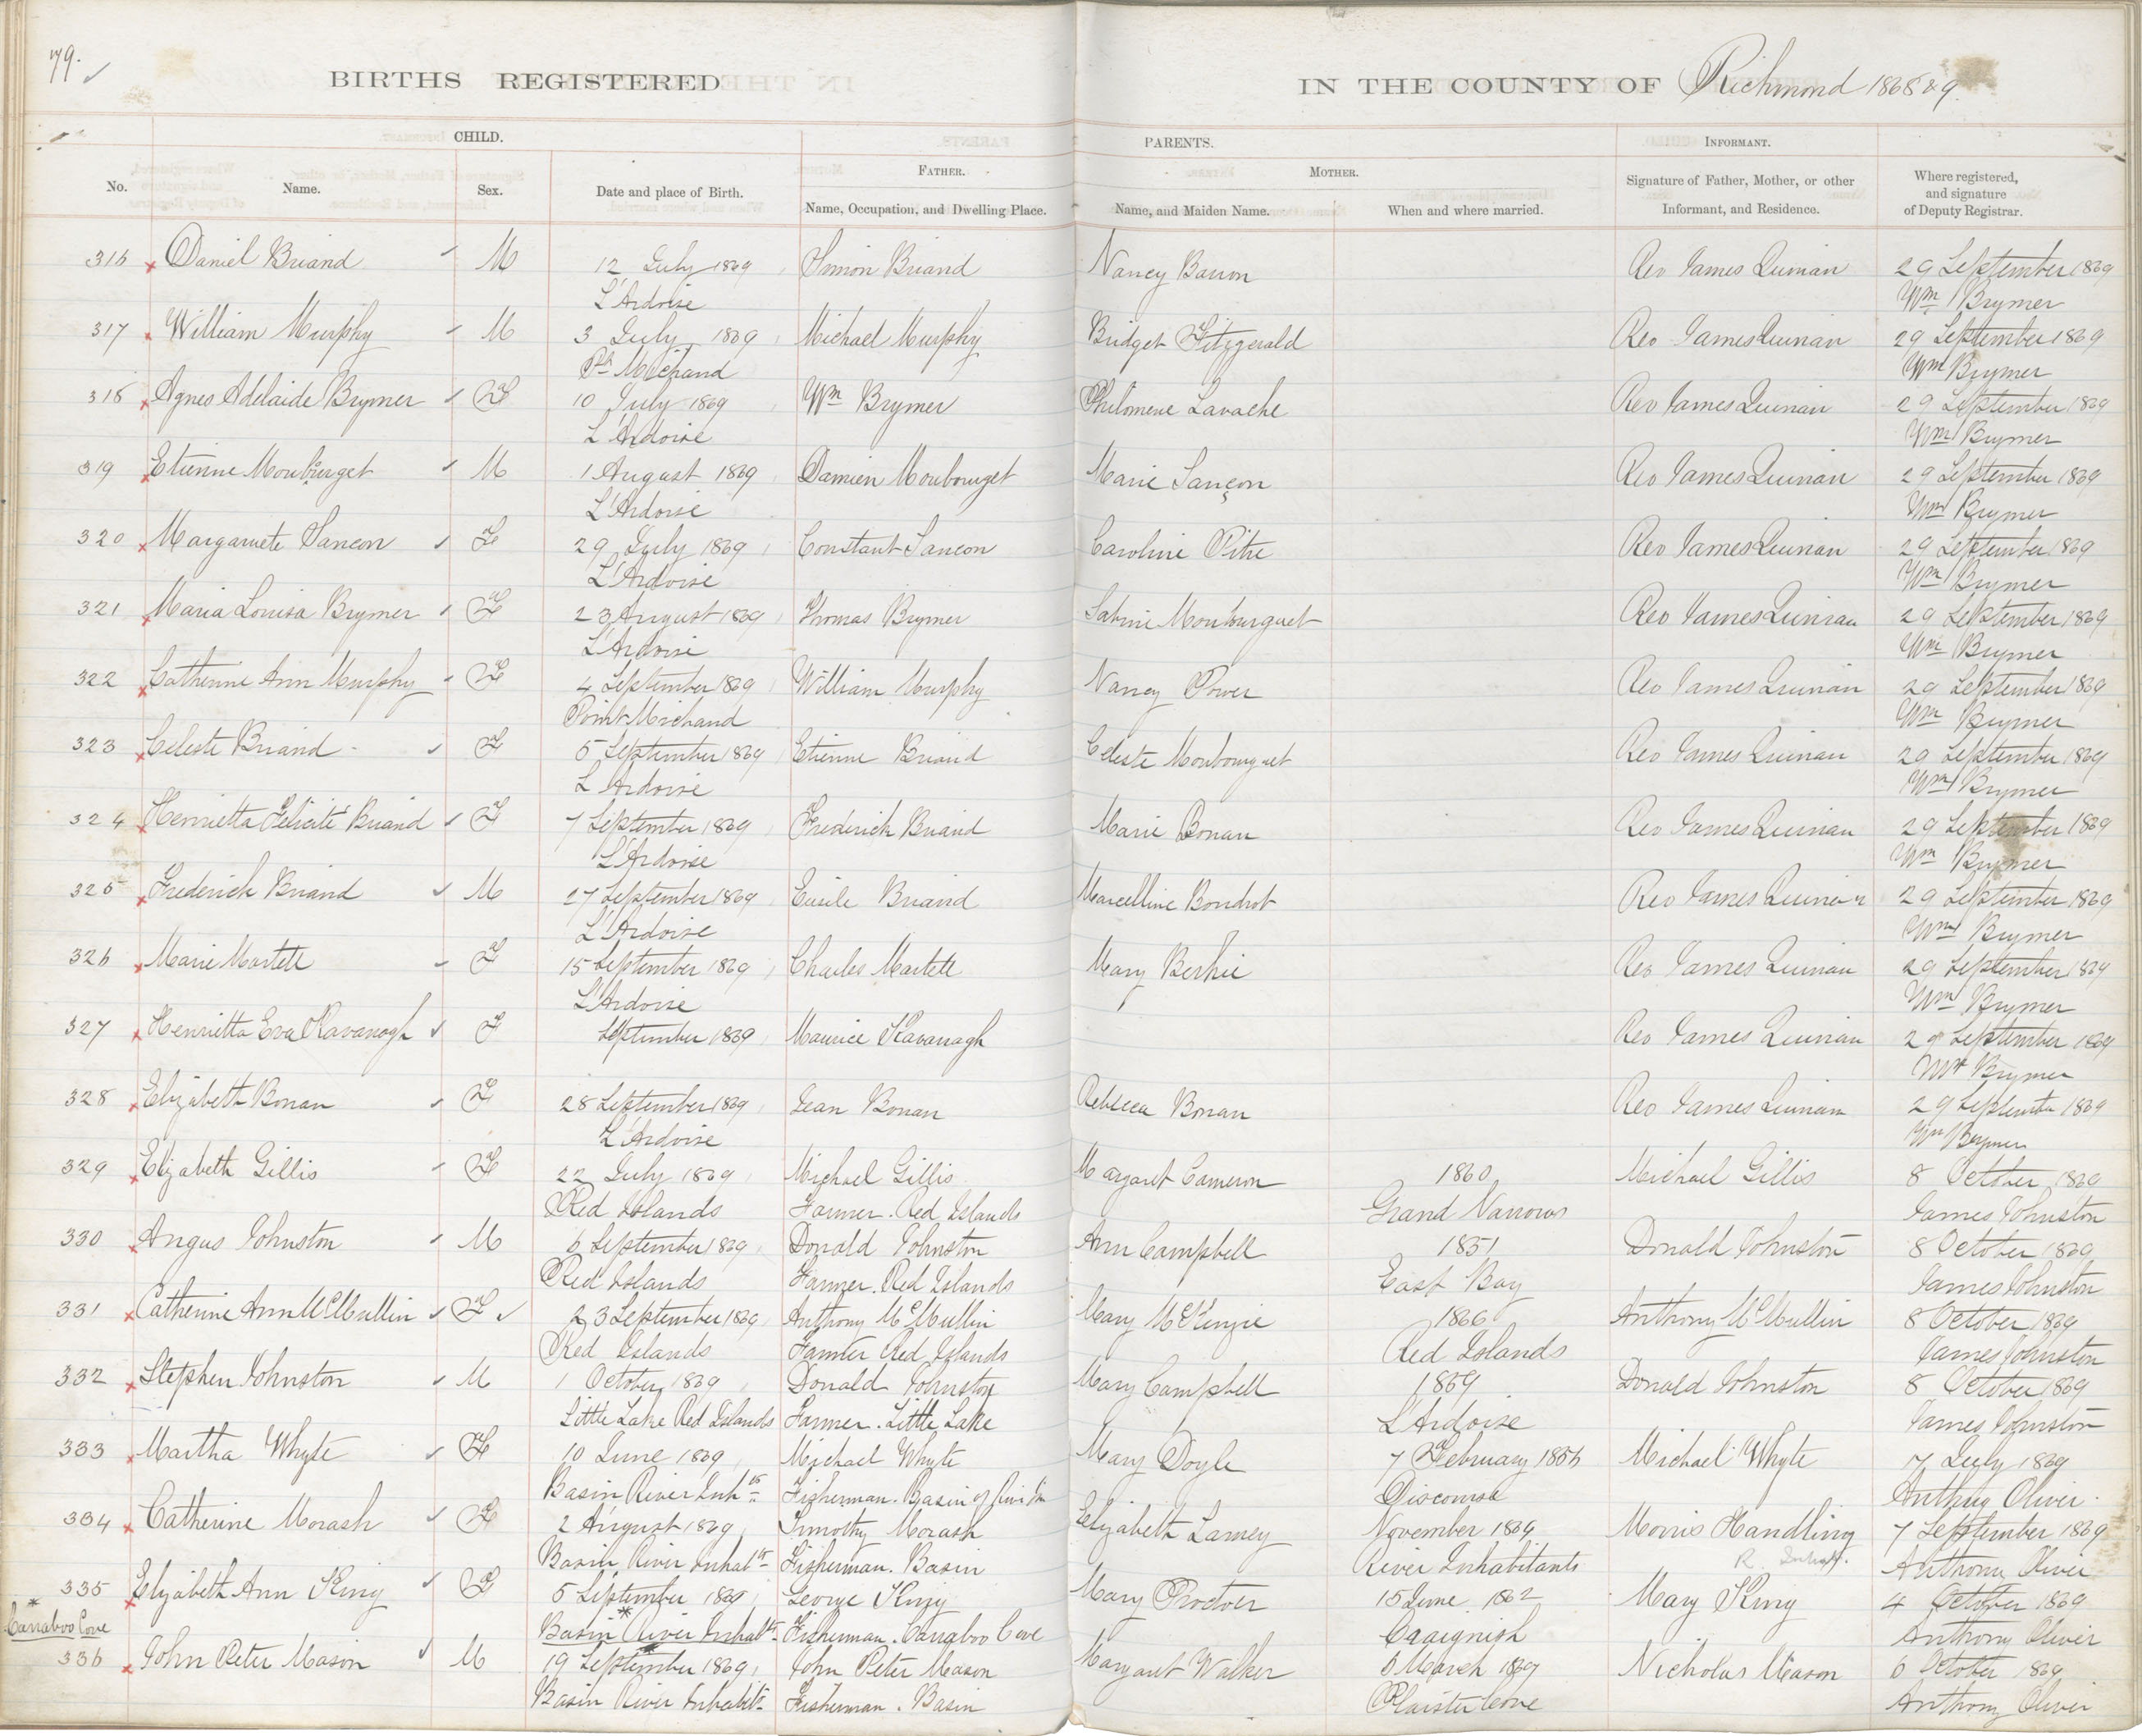 79.
BIRTHS REGISTERED IN THE COUNTY OF Richmond 1868 & 9.
CHILD. PARENTS. INFORMANT.
FATHER. MOTHER.
No. Name. Sex. Date and place of Birth. Name, Occupation, and Dwelling Place. Name, and Maiden Name. When and where married. Signature of Father, Mother, or other Informant, and Residence. Where registered, and signature of Deputy Registrar.
316 Daniel Briand M 12 July 1869 Simon Briand Nancy Barron Rev James Quinan 29 September 1869
L'Ardoise Wm Brymer
317 William Murphy M 3 July 1869 Michael Murphy Bridget Fitzgerald Rev James Quinan 29 September 1869
Pt Michaud Wm Brymer
318 Agnes Adelaide Brymer F 10 July 1869 Wm Brymer Philomene Lavache Rev James Quinan 29 September 1869
L'Ardoise Wm Brymer
319 Etienne Moubourget M 1 August 1869 Damien Moubourget Marie Sançon Rev James Quinan 29 September 1869
L'Ardoise Wm Brymer
320 Margaruete Sancon F 29 July 1869 Constant Sancon Caroline Pitre Rev James Quinan 29 September 1869
L'Ardoise Wm Brymer
321 Maria Louisa Brymer F 23 August 1869 Thomas Brymer Sabine Moubourguet Rev James Quinan 29 September 1869
L'Ardoise Wm Brymer
322 Catherine Ann Murphy F 4 September 1869 William Murphy Nancy Power Rev James Quinan 29 September 1869
Point Michaud Wm Brymer
323 Celeste Briand F 5 September 1869 Etienne Briand Celeste Moubourguet Rev James Quinan 29 September 1869
L'Ardoise Wm Brymer
324 Henrietta Félicité Briand F 7 September 1869 Frederick Briand Marie Bonan Rev James Quinan 29 September 1869
L'Ardoise Wm Brymer
325 Frederick Briand M 27 September 1869 Briand Marcelline Boudrot Rev James Quinan 29 September 1869
L'Ardoise Wm Brymer
326 Marie Martell F 15 September 1869 Charles Martell Mary Rev James Quinan 29 September 1869
L'Ardoise Wm Brymer
327 Henrietta Eva Kavanagh F September 1869 Maurice Kavanagh Rev James Quinan 29 September 1869
Wm Brymer
328 Elizabeth Bonan F 28 September 1869 Jean Bonan Rebecca Bonan Rev James Quinan 29 September 1869
L'Ardoise Wm Brymer
329 Elizabeth Gillis F 22 July 1869 Michael Gillis Margaret Cameron 1860 Michael Gillis 8 October 1869
Red Islands Farmer. Red Islands Grand Narrows James Johnston
330 Angus Johnston M 6 September 1869 Donald Johnston Ann Campbell 1851 Donald Johnston 8 October 1869
Red Islands Farmer. Red Islands East Bay James Johnston
331 Catherine Ann McMullin F 23 September 1869 Anthony McMullin Mary McKenzie 1866 Anthony McMullin 8 October 1869
Red Islands Farmer Red Islands Red Islands James Johnston
332 Stephen Johnston M 1 October 1869 Donald Johnston Mary Campbell 1869 Donald Johnston 8 October 1869
Little Lake Red Islands Farmer. Little Lake L'Ardoise James Johnston
333 Martha Whyte F 10 June 1869 Michael Whyte Mary Doyle 7 February 1856 Michael Whyte 7 July 1869
Basin River Inhts Fisherman. Basin of Discourse Anthony Oliver.
334 Catherine Morash F 2 August 1869 Timothy Morash Elizabeth Lamey November 1869 Morris Handling 7 September 1869
Basin River Inhabts Fisherman. Basin River Inhabitants R. Inhabt. Anthony Oliver
335 Elizabeth Ann King F 5 September 1869 George King Mary Proctor 15 June 1862 Mary King 4 October 1869
* Carraboo Cove * Basin River Inhabts Fisherman. Cangboo Cove Craignish Anthony Oliver
336 John Peter Mason M 19 September 1869 John Peter Mason Margaret Walker 6 March 1869 Nicholas Mason 6 October 1869
Basin River Inhabts Fisherman. Basin Plaister Cove Anthony Oliver